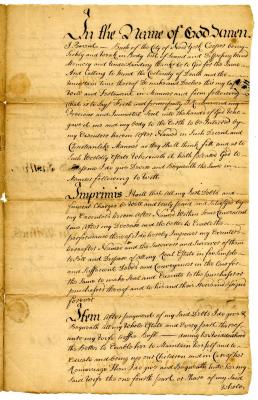 In the Name of God Amen.
I Brandt Schuyler of the City of New York
Sickly and weak in Body but of Sound and
Memory and Understanding thanks be to God for the same
And Calling to Mind the Certainty of Death and the
uncertain time thereof Do make and Declare this my last
Will and Testament in Manner and form following
that is to say First and principally I Recommend my
Precious and Immortal Soul into the hands of God who
gave it me and my Body to the Earth to be Interred by
my Executors herein After Named in such Decent and
Manner as they shall think fitt and as to
such Worldly Estate wherewith it hath pleased God to
me I do give Devise and Bequeath the same in
Manner following to Witt
Imprimis I Will that all my Just Debts and
Funeral Charges be well and truly paid and satisfyed by
my Executors herein After Named within some Convenient
time After my Decease and the better to Enable the
performance thereof I do hereby Impower my Executors
hereafter Named and the Survivors and Survivor of them
to Sell and Dispose of all my Real Estate in fee simple
and Sufficient Deeds and Conveyances in the Law for
the Same to make Seal and Execute to the purchaser or
purchasers thereof and to his and their Heirs and Assigns
forever
Item After payment of my Just Debts I do give &
Bequeath all my whole Estate and Every part thereof
unto my Wife during her Widowhood
the Better to Enable her to Maintain herself and to
Educate and bring up our Children and in Case of her
Remarriage then I do give and Bequeath unto her my
Said Wife the one fourth part of those of my Said
whole